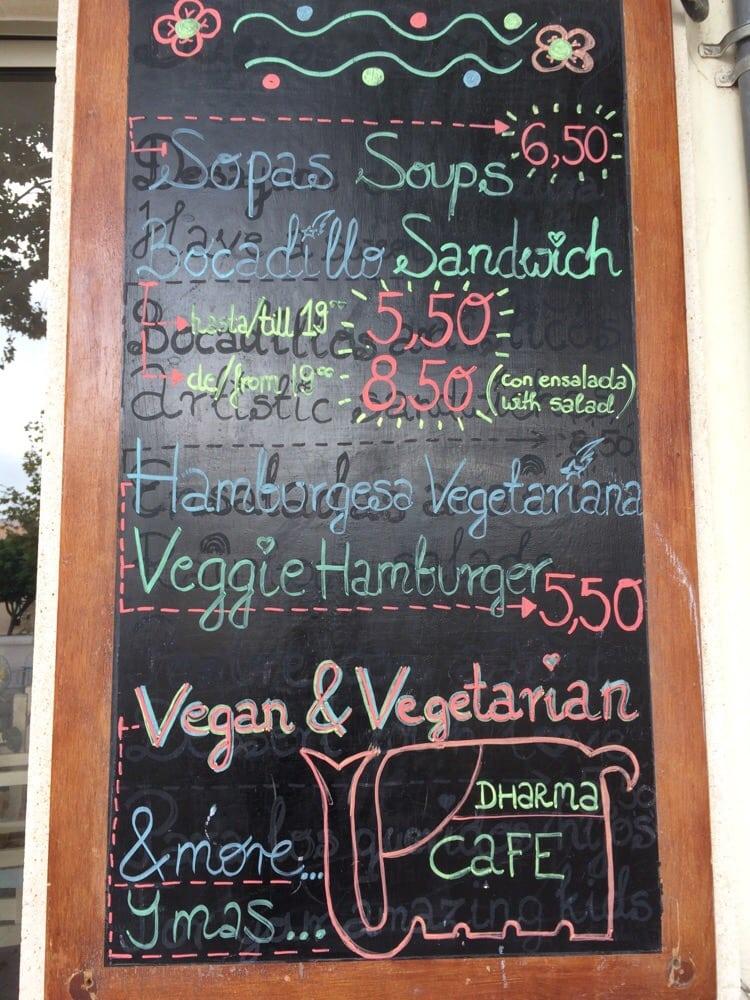 6,50
Sopas Soups
Bocadillo Sandwich
hasta/till 19⁰⁰ 5,50
de/from 19⁰⁰ 8,50 (con ensalada
with salad)
Hamburgesa Vegetariana
Veggie Hamburger
5,50
Vegan & Vegetarian
DHARMA
CaFE
& more...
y mas...
amazing kids